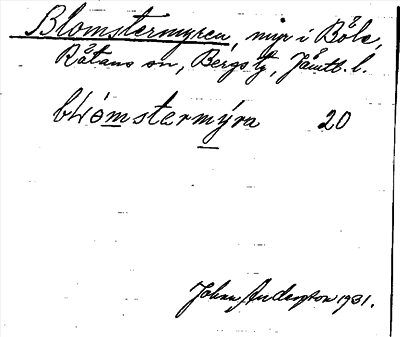 Blomstermyren, myr i Böle,
Rätans sn, Bergs tg, Jämtl. l.
blómstermýra 20
Johan Anderson 1931.